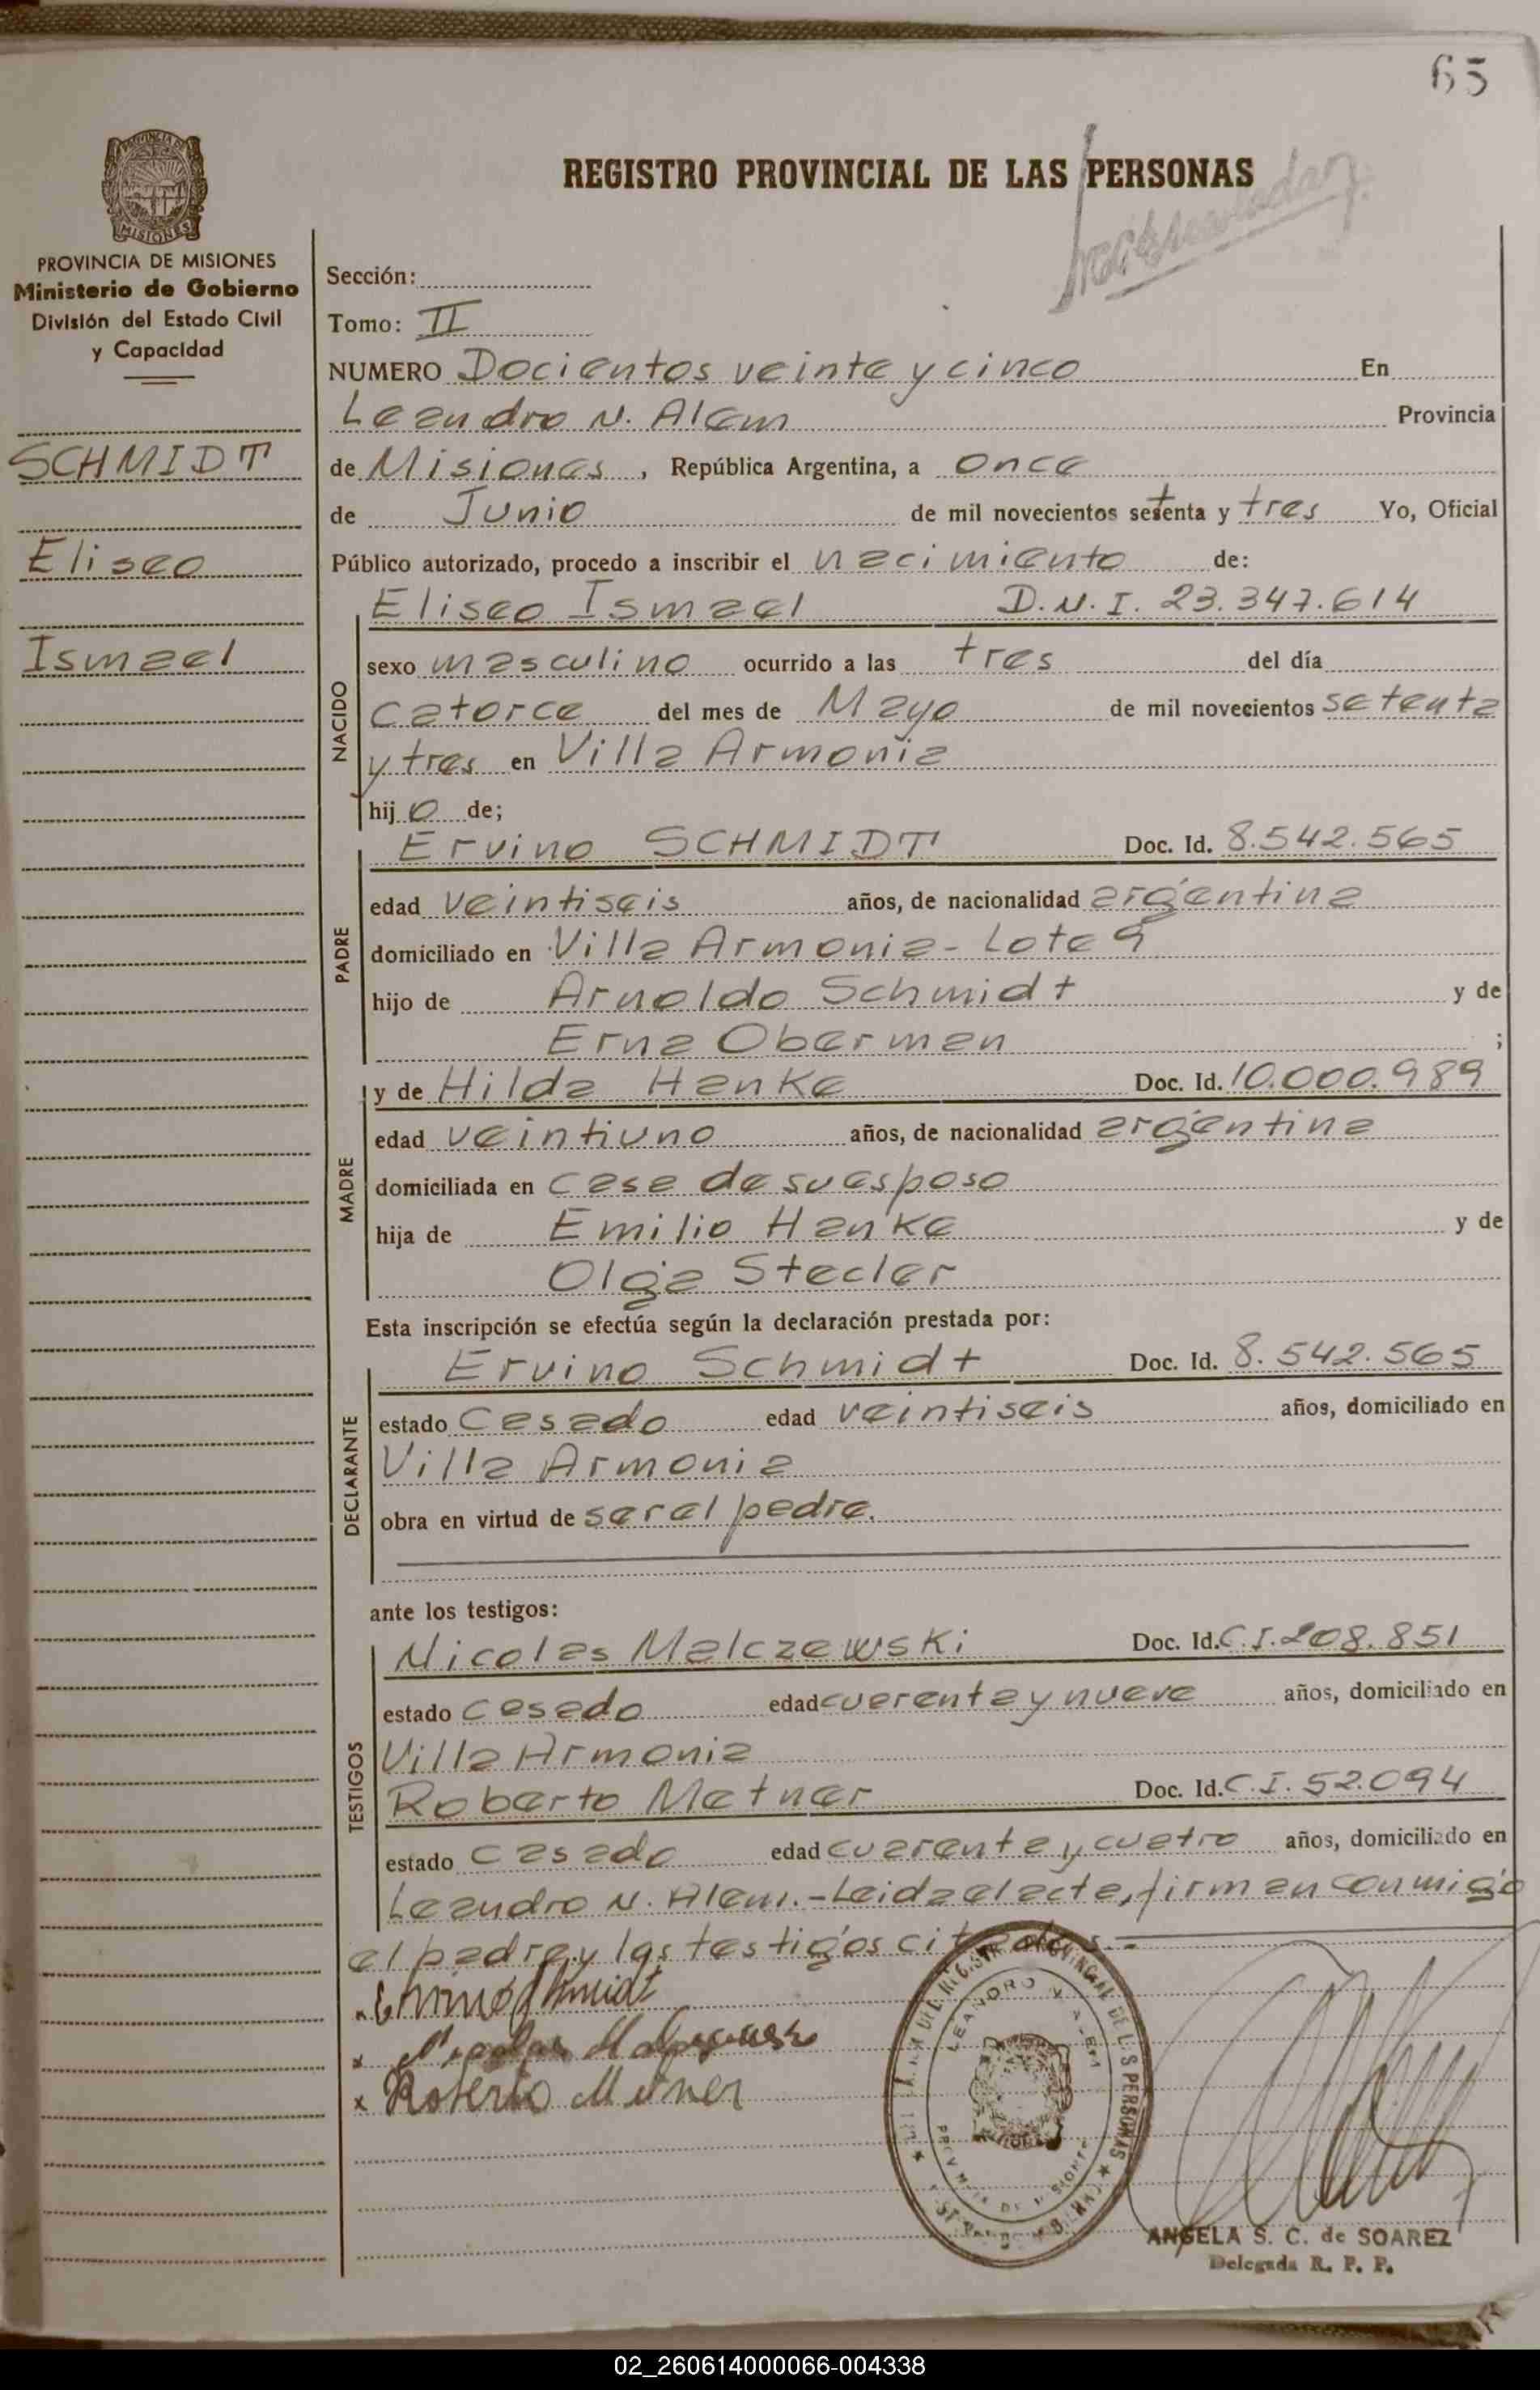 65
REGISTRO PROVINCIAL DE LAS PERSONAS
PROVINCIA DE MISIONES
Ministerio de Gobierno
División del Estado Civil
y Capacidad
SCHMIDT
Eliseo
Ismael
Sección:
Tomo: II
NUMERO Docientos veinte y cinco En
Leandro N. Alem Provincia
de Misiones, República Argentina, a once
de Junio de mil novecientos setenta y tres Yo, Oficial
Público autorizado, procedo a inscribir el nacimiento de:
NACIDO
Eliseo Ismael D.N.I. 23.347.614
sexo masculino ocurrido a las tres del día
catorce del mes de Mayo de mil novecientos setenta
y tres en Villa Armonia
hijo de;
PADRE
Ervino SCHMIDT Doc. Id. 8.542.565
edad veintiseis años, de nacionalidad argentina
domiciliado en Villa Armonia - Lote 9
hijo de Arnoldo Schmidt y de
Erna Oberman ;
MADRE
y de Hilda Hanke Doc. Id. 10.000.989
edad veintiuno años, de nacionalidad argentina
domiciliada en casa de su esposo
hija de Emilio Hanke y de
Olga Stecler
Esta inscripción se efectúa según la declaración prestada por:
DECLARANTE
Ervino Schmidt Doc. Id. 8.542.565
estado casado edad veintiseis años, domiciliado en
Villa Armonia
obra en virtud de ser el padre.
ante los testigos:
TESTIGOS
Nicolas Malczewski Doc. Id. C.I. 208.851
estado casado edad cuarenta y nueve años, domiciliado en
Villa Armonia
Roberto Metner Doc. Id. C.I. 52.094
estado casado edad cuarenta y cuatro años, domiciliado en
Leandro N. Alem.- Leida el acta, firman conmigo
el padre y los testigos citados.-
Ervino Schmidt
Roberto Metner
LEANDRO N. ALEM
PROVINCIA DE MISIONES
ANGELA S. C. de SOAREZ
Delegada R. P. P.
02_260614000066-004338